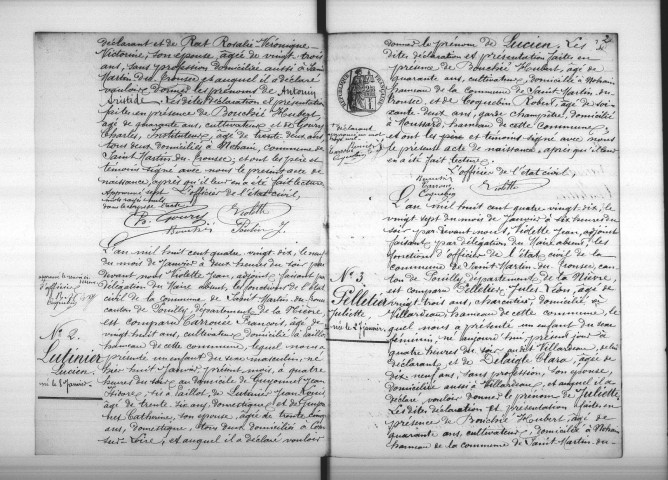 déclarant et de Rat Rosalie Véronique
Victorine, son épouse, âgée de vingt trois
ans, sans profession domiciliée aussi à Saint
Martin du Tronsec et auquel il a déclaré
vouloir donner les prénoms de Antonin
Aristide. Les dites déclaration et présentation
faites en présence de Bouchié Hubert,
âgé de quarante ans, cultivateur et de Gouvry
Charles, Instituteur, âgé de trente deux ans
tous deux domiciliés à Nohain, commune de
Saint Martin du Tronsec; et ont les père et
témoins signé avec nous le présent acte de
naissance, après qu'il leur en a été fait lecture
L'officier de l'état civil,
Ch. Gouvry Violette
L'an mil huit cent quatre vingt dix, le neuf
du mois de Janvier à deux heures du soir par
devant nous Violette Jean, adjoint faisant par
délégation du Maire absent, les fonctions d'officier de l'état
civil de la commune de Saint Martin du Tronsec
canton de Pouilly, département de la Nièvre
est comparu Carroué François, âgé de
vingt huit ans, cultivateur, domicilié à
hameau de cette commune, lequel nous a
présenté un enfant du sexe masculin, né
hier huit Janvier présent mois, à quatre
heures du soir, au domicile de Guyonnet Jean
de Lutinier Jean
âgé de trente six ans, domestique, et de
Catherine, son épouse, âgée de trente cinq
ans, domestique, tous deux domiciliés à Cosne
sur Loire, et auquel il a déclaré vouloir
No 2.
Lutinier
Lucien
né le 8 Janvier.
2
donner le prénom de Lucien. Les
dites déclaration et présentation faites en
présence de Bouchié Hubert, âgé de
quarante ans, cultivateur, domicilié à Nohain
hameau de la commune de Saint Martin du
Tronsec, et de Coquelin Robert, âgé de soixante
deux ans, garde champêtre, domicilié
à Moussard, hameau de cette commune;
et ont les père et témoins signé avec nous
le présent acte de naissance, après qu'il leur
en a été fait lecture
L'officier de l'état civil,
Violette
L'an mil huit cent quatre vingt dix, le
vingt sept du mois de Janvier à six heures du
soir par devant nous, Violette Jean, adjoint
faisant par délégation du Maire absent, les
fonctions d'officier de l'état civil de la
commune de Saint Martin du Tronsec, canton
de Pouilly, département de la Nièvre
est comparu Pelletier Jules Léon, âgé de
vingt trois ans, charcutier, domicilié à
Villardeau, hameau de cette commune, lequel
nous a présenté un enfant du sexe
féminin, né aujourd'hui présent jour à
quatre heures du soir au dit Villardeau, de lui
déclarant et de Delaigte Clara, âgée de
dix neuf ans, sans profession, son épouse,
domiciliée aussi à Villardeau, et auquel il a
déclaré vouloir donner le prénom de Juliette,
Les dites déclaration et présentation faites en
présence de Bouchié Hubert, âgé de
quarante ans, cultivateur, domicilié à Nohain
hameau de la commune de Saint Martin du
No 3.
Pelletier
Juliette
née le 27 Janvier